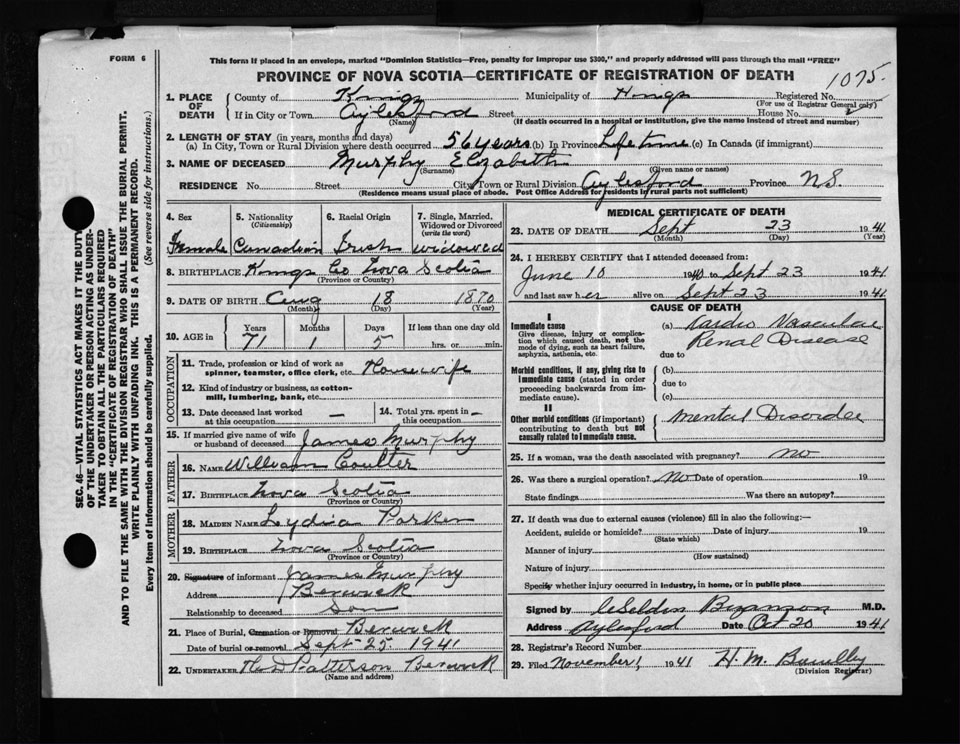 FORM 6
This form if placed in an envelope, marked "Dominion Statistics—Free, penalty for improper use $300," and properly addressed will pass through the mail "FREE"
PROVINCE OF NOVA SCOTIA—CERTIFICATE OF REGISTRATION OF DEATH
1075
1. PLACE OF DEATH County of Kings Municipality of Kings Registered No.
(For use of Registrar General only)
If in City or Town Aylesford Street House No.
(Name) (If death occurred in a hospital or institution, give the name instead of street and number)
2. LENGTH OF STAY (in years, months and days)
(a) In City, Town or Rural Division where death occurred 56 years (b) In Province Life time (c) In Canada (if immigrant)
3. NAME OF DECEASED Murphy Elizabeth
(Surname) (Given name or names)
RESIDENCE No. Street City, Town or Rural Division Aylesford Province N.S.
(Residence means usual place of abode. Post Office Address for residents in rural parts not sufficient)
4. Sex 5. Nationality (Citizenship) 6. Racial Origin 7. Single, Married, Widowed or Divorced (write the word)
Female Canadian Irish widowed
8. BIRTHPLACE Kings Co Nova Scotia
(Province or Country)
9. DATE OF BIRTH Aug 18 1870
(Month) (Day) (Year)
10. AGE in Years Months Days If less than one day old
71 1 5 hrs. or min.
OCCUPATION
11. Trade, profession or kind of work as spinner, teamster, office clerk, etc. Housewife
12. Kind of industry or business, as cotton-mill, lumbering, bank, etc.
13. Date deceased last worked at this occupation — 14. Total yrs. spent in this occupation —
15. If married give name of wife or husband of deceased James Murphy
FATHER
16. NAME William Coulter
17. BIRTHPLACE Nova Scotia
(Province or Country)
MOTHER
18. MAIDEN NAME Lydia Parker
19. BIRTHPLACE Nova Scotia
(Province or Country)
20. Signature of informant James Murphy
Address Berwick
Relationship to deceased Son
21. Place of Burial, Cremation or Removal Berwick
Date of burial or removal Sept 25 1941
22. UNDERTAKER Patterson Berwick
(Name and address)
MEDICAL CERTIFICATE OF DEATH
23. DATE OF DEATH Sept 23 1941
(Month) (Day) (Year)
24. I HEREBY CERTIFY that I attended deceased from:
June 10 1940 to Sept 23 1941
and last saw her alive on Sept 23 1941
CAUSE OF DEATH
I
Immediate cause (a) Cardio Vascular
Renal Disease
Give disease, injury or complication which caused death, not the mode of dying, such as heart failure, asphyxia, asthenia, etc.
due to
Morbid conditions, if any, giving rise to immediate cause (stated in order proceeding backwards from immediate cause). (b)
due to
(c)
II
Other morbid conditions (if important) contributing to death but not causally related to immediate cause. Mental Disorder
25. If a woman, was the death associated with pregnancy? no
26. Was there a surgical operation? No Date of operation 19
State findings Was there an autopsy?
27. If death was due to external causes (violence) fill in also the following:—
Accident, suicide or homicide? Date of injury 19
(State which)
Manner of injury
(How sustained)
Nature of injury
Specify whether injury occurred in industry, in home, or in public place
Signed by M.D.
Address Aylesford Date Oct 20 1941
28. Registrar's Record Number
29. Filed November 1, 1941 H. M.
(Division Registrar)
SEC. 46—VITAL STATISTICS ACT MAKES IT THE DUTY
OF THE UNDERTAKER OR PERSON ACTING AS UNDER-
TAKER TO OBTAIN ALL THE PARTICULARS REQUIRED
IN THE "CERTIFICATE OF REGISTRATION OF DEATH"
AND TO FILE THE SAME WITH THE DIVISION REGISTRAR WHO SHALL ISSUE THE BURIAL PERMIT.
WRITE PLAINLY WITH UNFADING INK. THIS IS A PERMANENT RECORD.
Every item of information should be carefully supplied. (See reverse side for instructions.)